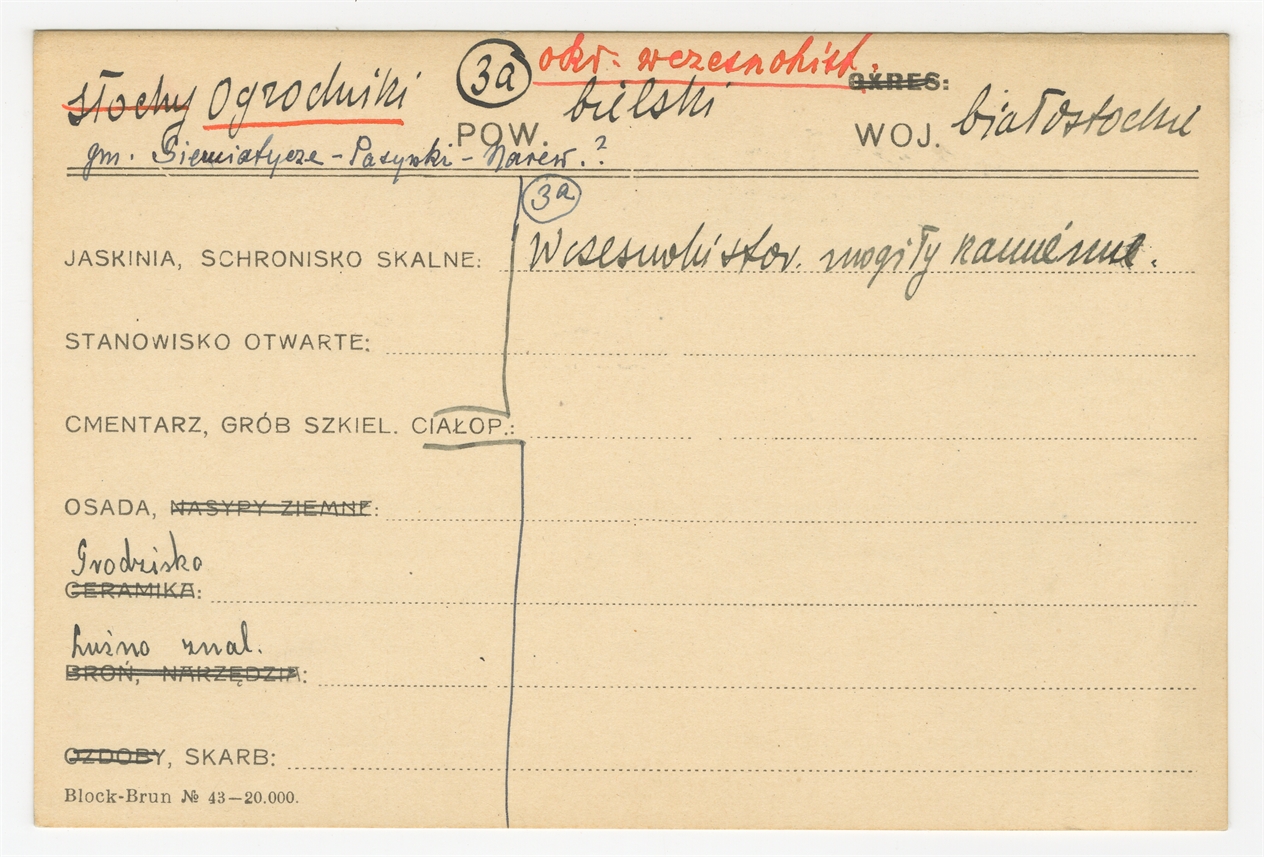 3a okr. wczesnohist.
Stochy Ogrodniki POW. bielski OKRES: WOJ. białostockie
gm. Siemiatycze - Pasynki - Narew.?
3a
JASKINIA, SCHRONISKO SKALNE: Wczesnohistor. mogiły kamienne.
STANOWISKO OTWARTE:
CMENTARZ, GRÓB SZKIEL. CIAŁOP.:
OSADA, NASYPY ZIEMNE:
Grodzisko
CERAMIKA:
Luźno znal.
BROŃ, NARZĘDZIA:
OZDOBY, SKARB:
Block-Brun № 43—20.000.